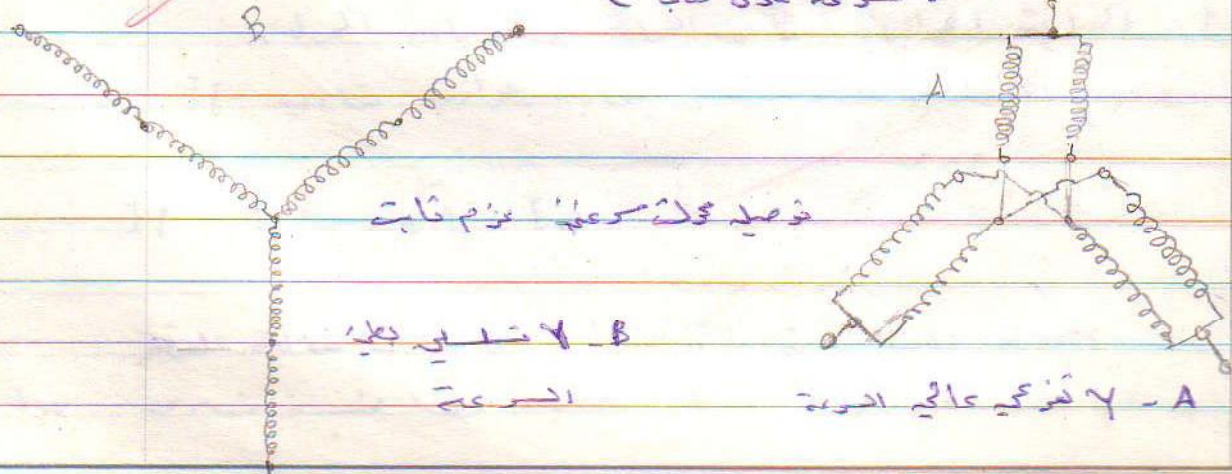 B
A
توصيل محرك سرعتين عزم ثابت
B - Y تسلسلي بطيء
السرعة
A - Y تفرعي عالي السرعة